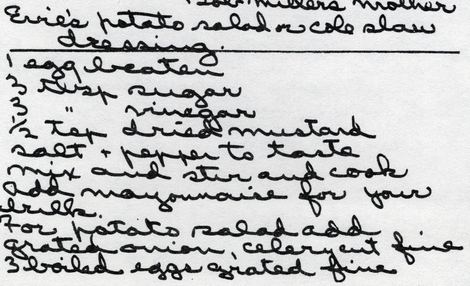 mother
Evie's potato salad or cole slaw
dressing.
1 egg beaten
3 tbsp sugar
3 " vinegar
1/2 tsp dried mustard
salt + pepper to taste
mix and stir and cook
add mayonnaise for your
For potato salad add
grated onion, celery cut fine
3 boiled eggs grated fine